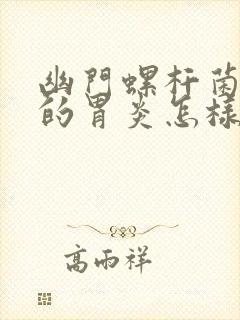 幽門螺杆菌
的胃炎怎樣
高雨祥